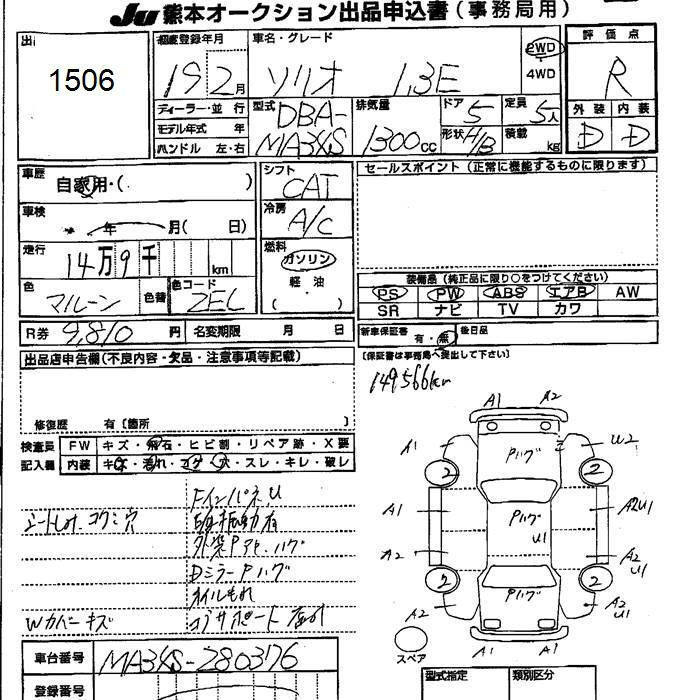 JU 熊本オークション出品申込書(事務局用)
1506
初度登録年月
19 2月
車名・グレード
ソリオ 1.3E
2WD
4WD
評価点
R
外装 内装
D D
ディーラー・並行
モデル年式 年
ハンドル 左・右
型式
DBA-
MA34S
排気量
1300cc
ドア 5
定員 5人
形状 H/B
積載 kg
車歴
自家用・( )
車検
年 月( 日)
走行
14万9千 km
色
マルーン
色替
色コード
ZEL
シフト
CAT
冷房
A/C
燃料
ガソリン
軽油
( )
セールスポイント(正常に機能するものに限ります)
装備品(純正品に限り○をつけてください)
PS PW ABS エアB AW
SR ナビ TV カワ
R券 9,810 円 名変期限 月 日
新車保証書 有・無 後日品
(保証書は事務局へ提出して下さい)
出品店申告欄(不良内容・欠品・注意事項等記載)
149566km
修復歴 有〔箇所 〕
検査員
記入欄
FW キズ・飛石・ヒビ割・リペア跡・X要
内装 キズ・汚れ・コゲ・穴・スレ・キレ・破レ
FインパネU
シートしみ.コゲ穴
外装Pアセ.ハゲ
DミラーPハゲ
オイルもれ
Wカバーキズ
コアサポート
A1 A2
A1 PハゲU2
2 2
A1 Pハゲ A2U1
U1
A2 A2
U1
2 2
A2 Pハゲ A2
U1
A1 A1
スペア
車台番号 MA34S-280376
登録番号
型式指定 類別区分